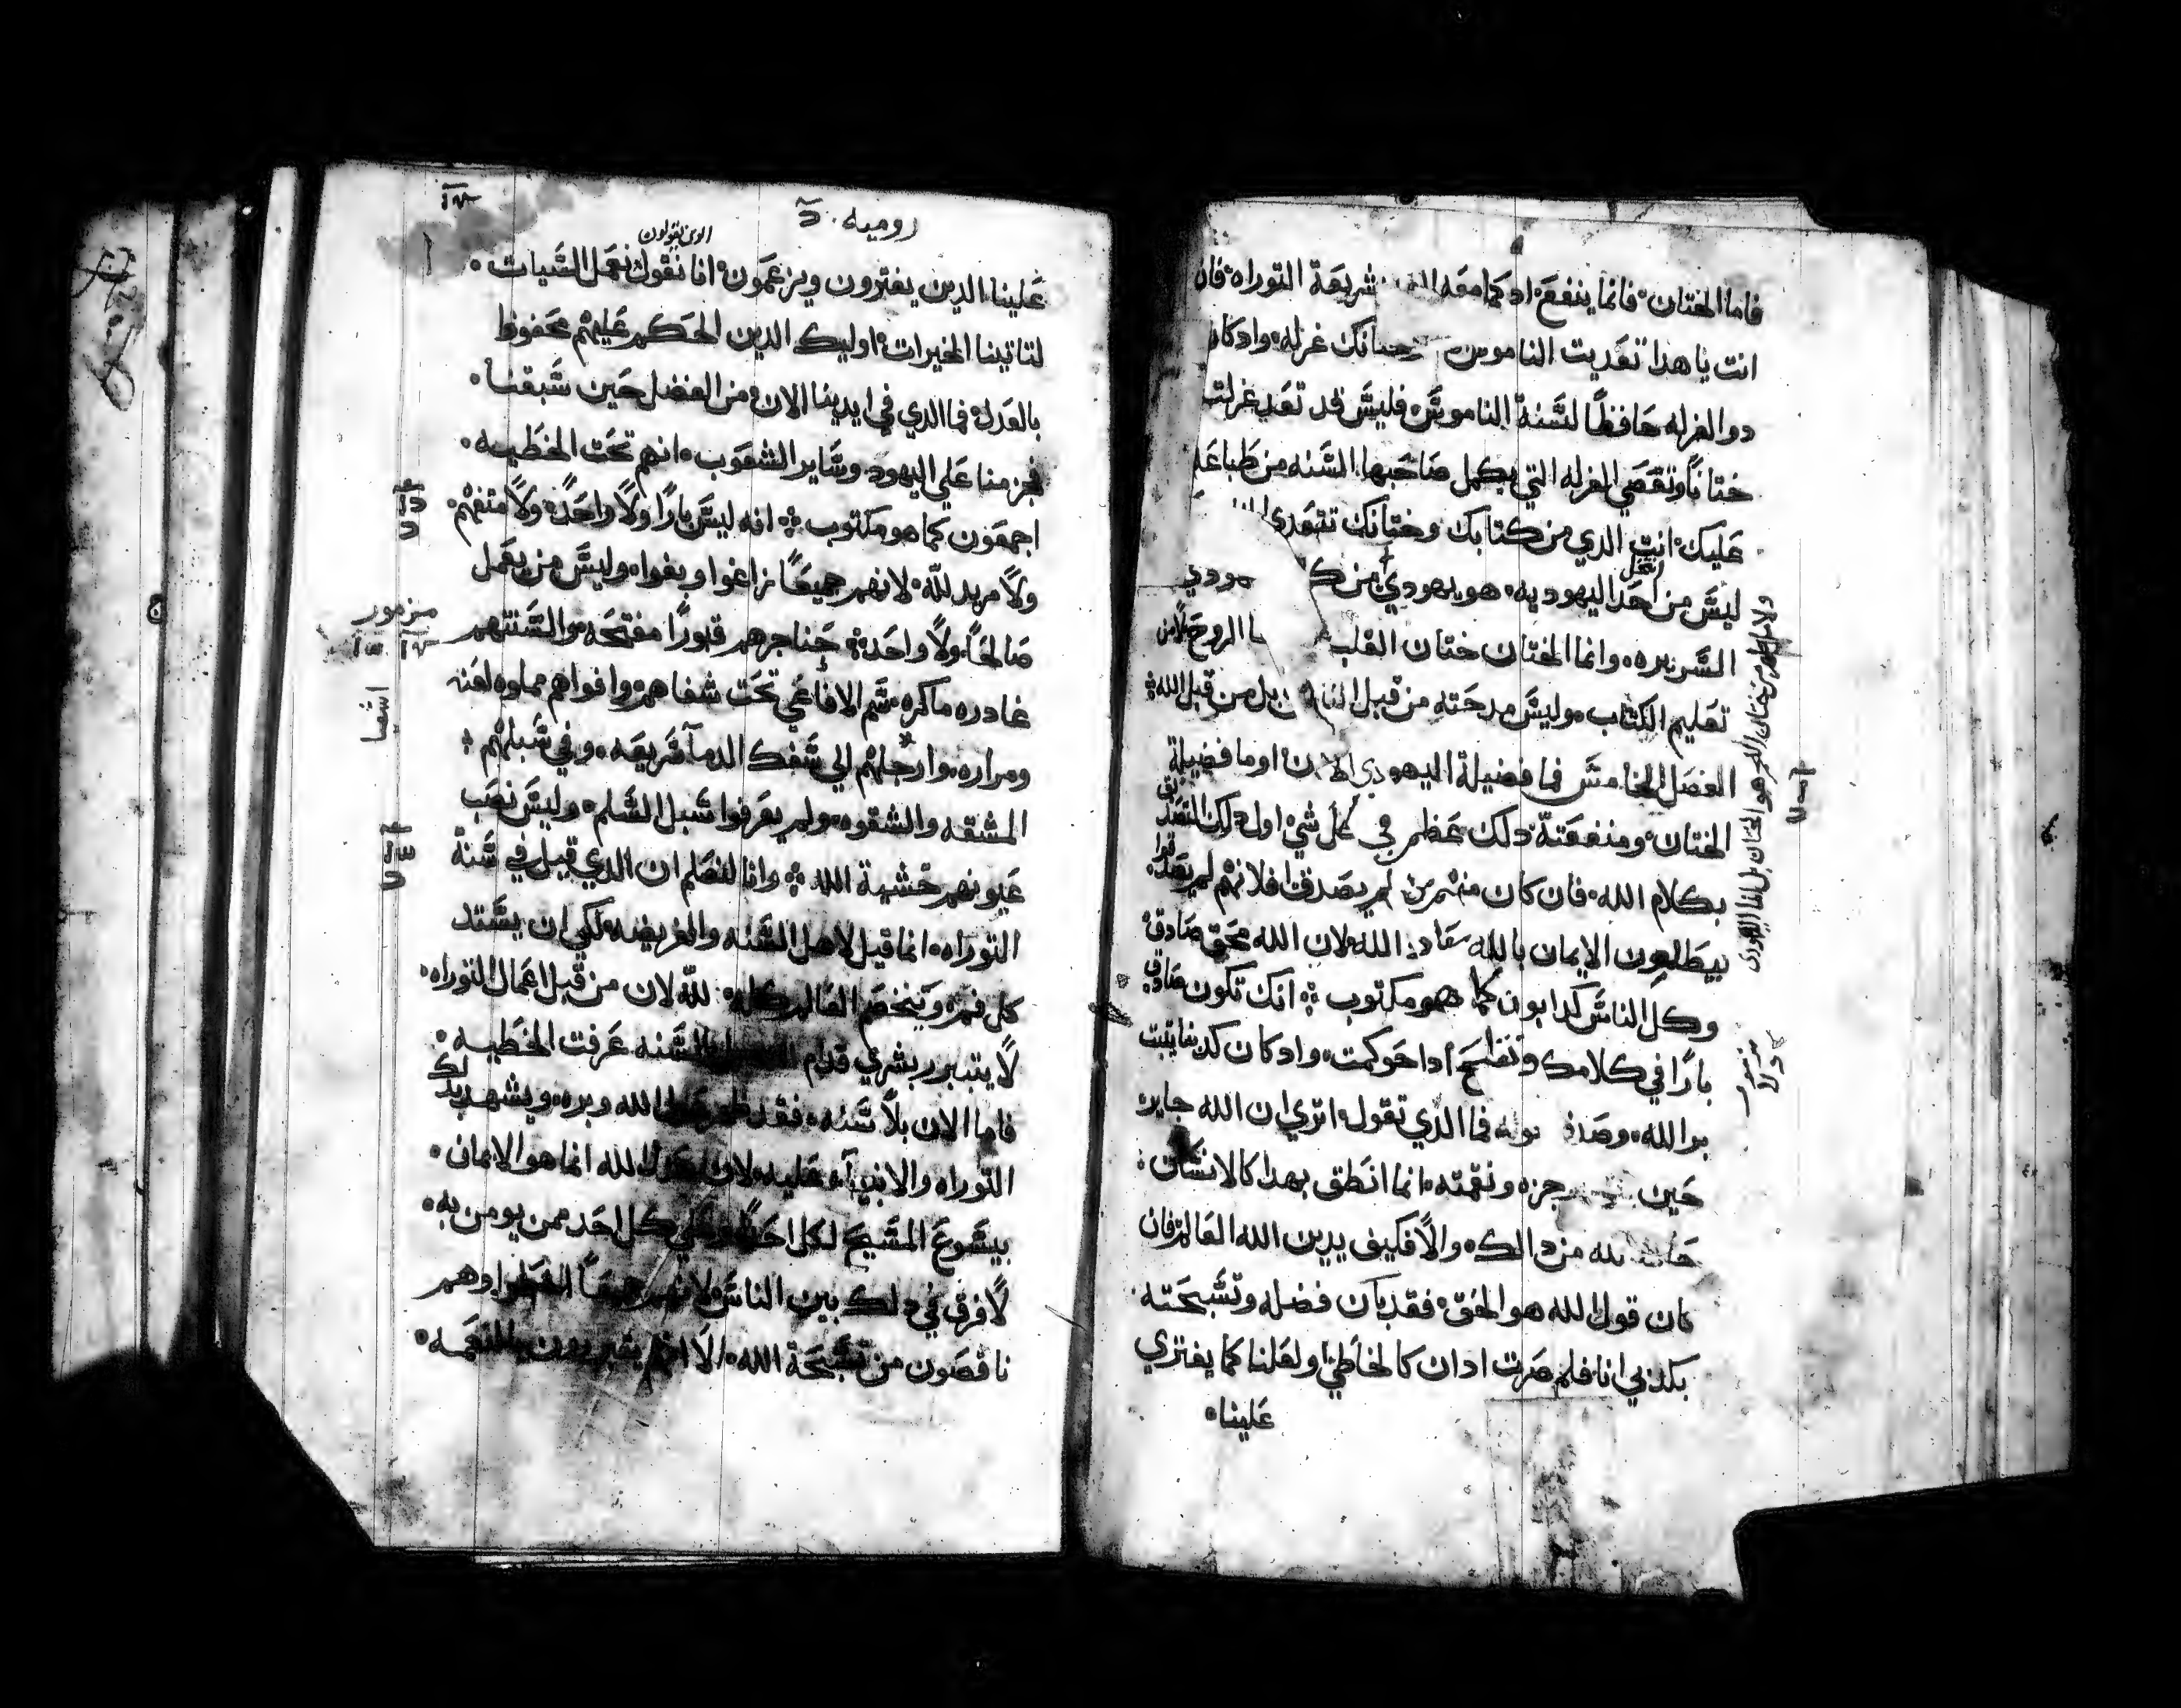 فاما الختان فانما ينفع اد كما معه شريعة التوراه فان
انت يا هدا تعديت الناموس ختانك غرله وادكان
دو الغرله حافظا لسنة الناموس فليس قد تعد غرلته
ختانا وتقضي الغرله التي يكمل صاحبها السنه من طباعه
عليك انت الدي من كتابك وختانك تتعدي
ليس من انتحل احد اليهوديه هو يهودي من
السريره وانما الختان ختان القلب الروح لا من
تعليم الكتاب وليس مدحته من قبل الناس بل من قبل الله
الفصل الخامس فما فضيلة اليهودي الان او ما فضيلة
الختان ومنفعته دلك عظم في كل شي اول دلك التصديق
بكلام الله فان كان منهم من لم يصدق افلانهم لم يصدقوا
يبطلون الايمان بالله معاد الله لان الله محق صادق
وكل الناس كدابون كما هو مكتوب انك تكون صادق
بارا في كلامك وتفلح ادا حوكمت وادكان كدبنا يثبت
بر الله وصدق قوله فما الدي تقول اتري ان الله جاير
حين رجزه ونقمته انما انطق بهدا كالانسان
حاشا لله من دالك والا فكيف يدين الله العالم فان
كان قول الله هو الحق فقد بان فضله وتسبحته
بكدبي انا فلم صرت ادان كالخاطي ولعلنا كما يفتري
علينا
مزمور
روميه
علينا الدين يفترون ويزعمون انا نقول نعمل السيات
لتاتينا الخيرات اوليك الدين الحكم عليهم محفوظ
بالعدل فما الدي في ايدينا الان من الفضل حين سبقنا
فجزمنا علي اليهود وساير الشعوب انهم تحت الخطيه
اجمعون كما هو مكتوب انه ليس بارا ولا واحد ولا متفهم
ولا مريد لله لانهم جميعا زاغوا وبغوا وليس من يعمل
صالحا ولا واحد حناجرهم قبورا مفتحه والسنتهم
غادره ماكره سم الافاعي تحت شفاههم وافواهم مملوه لعنه
ومراره وارجلهم الي سفك الدما سريعه وفي سبلهم
المشقه والشقوه ولم يعرفوا سبل السلم وليس نصب
عيونهم خشية الله وانا لنعلم ان الدي قيل في سنة
التوراه انما قيل لاهل السنه والفريضه لكي ان يستد
كل فم ويخضع العالم كله لله لان من قبل اعمال التوراه
لا يتبرر بشري قدام السنه عرفت الخطيه
فاما الان بلا سنه فقد ظهر عدل الله وبره ويشهد بدلك
التوراه والانبيا عليه لان عدل الله انما هو الايمان
بيسوع المسيح لكل احد وعلي كل احد ممن يومن به
لا فرق في دلك بين الناس لانهم جميعا اخطوا وهم
ناقصون من تسبحة الله الا انهم يتبررون بالنعمه
مزمور
اشعيا